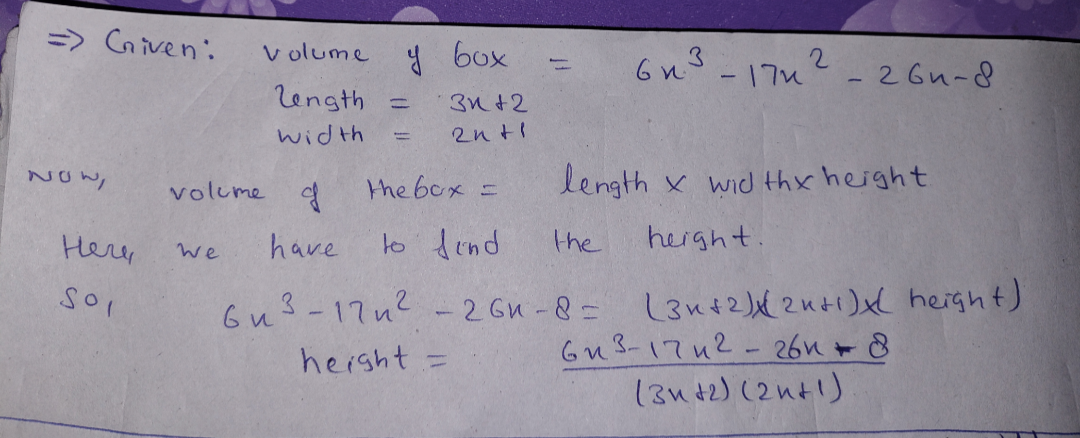 => Given: volume of box = 6x³ - 17x² - 26x - 8
length = 3x+2
width = 2x+1
Now, volume of the box = length x width x height
Here, we have to find the height.
So, 6x³ - 17x² - 26x - 8 = (3x+2)x(2x+1)x( height)
height = 6x³ - 17x² - 26x - 8
(3x+2) (2x+1)